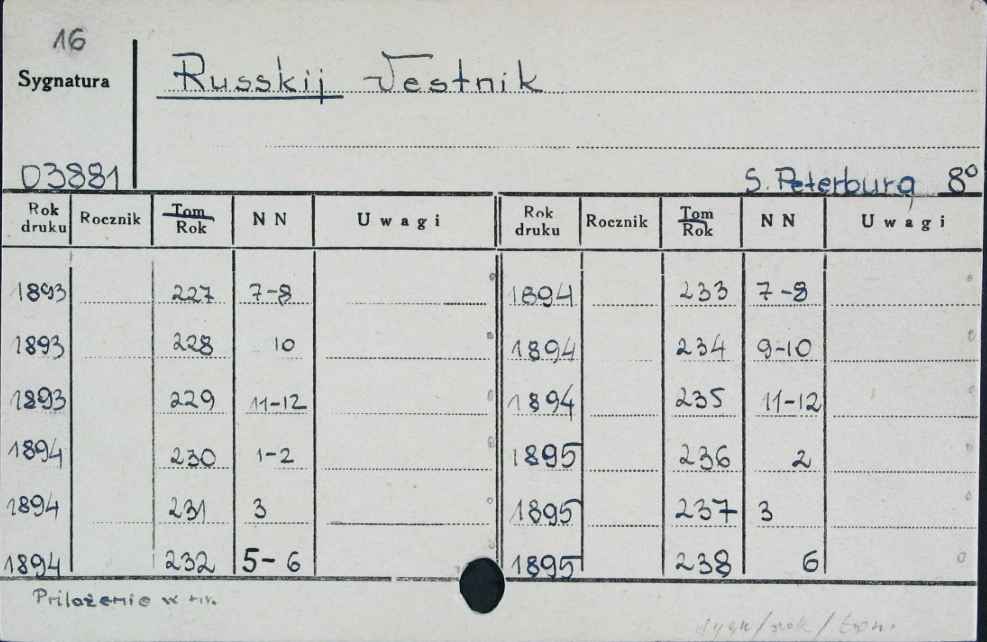 16
Sygnatura
Russkij Vestnik
D3881
S. Peterburg 8°
Rok druku Rocznik Tom Rok NN Uwagi Rok druku Rocznik Tom Rok NN Uwagi
1893 227 7-8 1894 233 7-8
1893 228 10 1894 234 9-10
1893 229 11-12 1894 235 11-12
1894 230 1-2 1895 236 2
1894 231 3 1895 237 3
1894 232 5-6 1895 238 6
Priloženie w nr.
sygn/rok/tom.